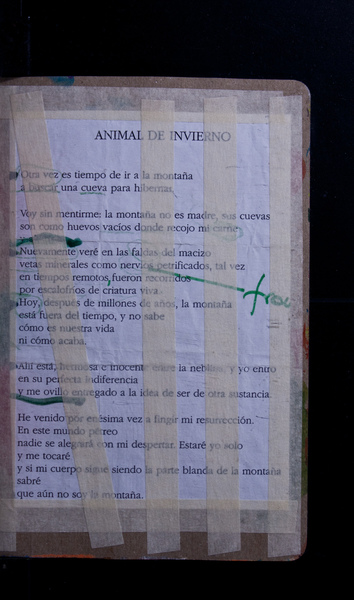 ANIMAL DE INVIERNO
Otra vez es tiempo de ir a la montaña
a buscar una cueva para hibernar.
Voy sin mentirme: la montaña no es madre, sus cuevas
son como huevos vacíos donde recojo mi carne
Nuevamente veré en las faldas del macizo
vetas minerales como nervios petrificados, tal vez
en tiempos remotos fueron recorridos
por escalofríos de criatura viva.
Hoy, después de millones de años, la montaña
está fuera del tiempo, y no sabe
cómo es nuestra vida
ni cómo acaba.
Allí está, hermosa e inocente entre la neblina, y yo entro
en su perfecta indiferencia
y me ovillo entregado a la idea de ser de otra sustancia.
He venido por enésima vez a fingir mi resurrección.
En este mundo pétreo
nadie se alegrará con mi despertar. Estaré yo solo
y me tocaré
y si mi cuerpo sigue siendo la parte blanda de la montaña
sabré
que aún no soy la montaña.